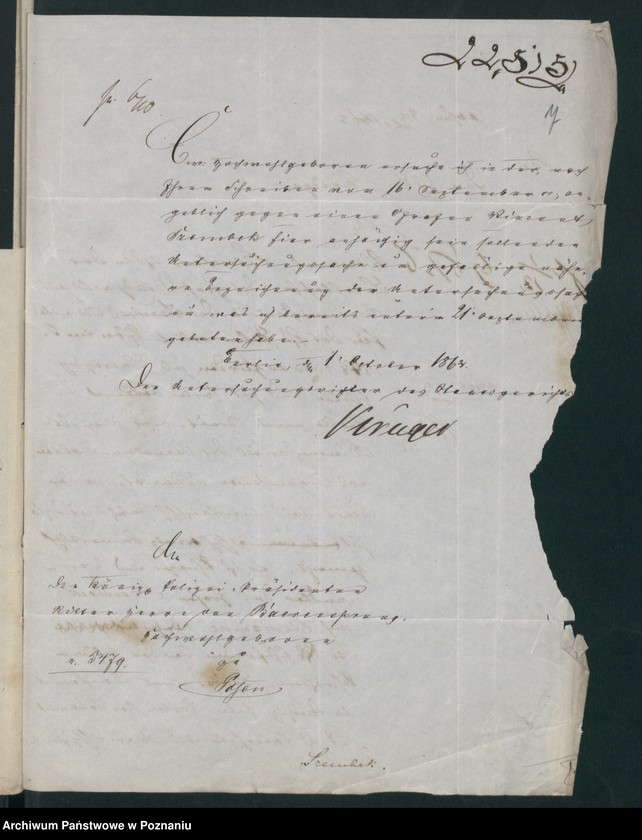 22,5)5)
7
pr. 6/10
Ew. Hochwohlgeboren ersuche ich in der, nach
Ihrem Schreiben vom 16. September cr, an-
geblich gegen einen Grafen Vincent
Szembek hier anhängig sein sollenden
Untersuchungssache um gefällige nähe-
re Bezeichnung der Untersuchungssache
um was ich bereits unterm 21. September
gebeten habe.
Berlin, den 1. October 1863.
Der Untersuchungsrichter des Staatsgerichts
Krüger
An
den Königl. Polizei-Präsidenten
Ritter Herrn von Baerensprung
Hochwohlgeboren
zu
Posen
n. 5779.
Szembek.
Archiwum Państwowe w Poznaniu